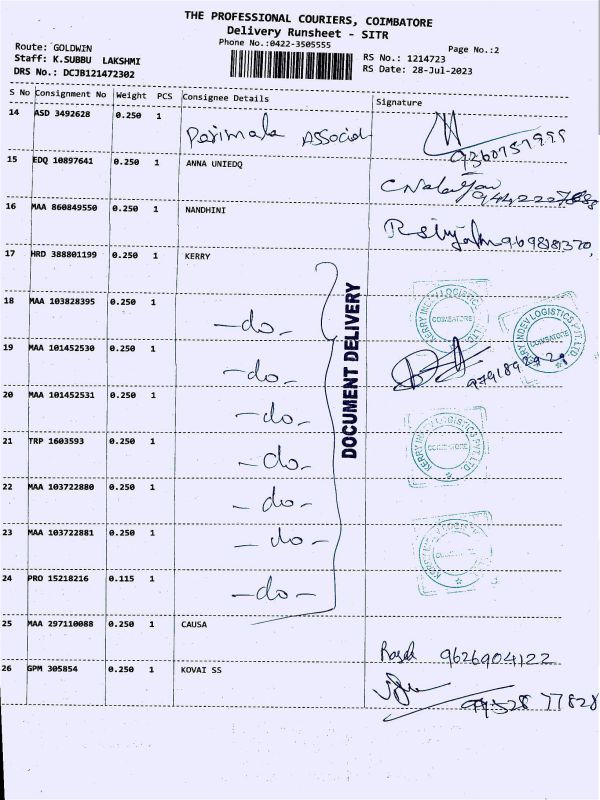 THE PROFESSIONAL COURIERS, COIMBATORE
Delivery Runsheet - SITR
Phone No.:0422-3505555
Page No.:2
Route: GOLDWIN
Staff: K.SUBBU LAKSHMI
DRS No.: DCJB121472302
RS No.: 1214723
RS Date: 28-Jul-2023
S No Consignment No Weight PCS Consignee Details Signature
14 ASD 3492628 0.250 1 Parimala Associat
9360757999
15 EDQ 10897641 0.250 1 ANNA UNIEDQ
16 MAA 860849550 0.250 1 NANDHINI
17 HRD 388801199 0.250 1 KERRY
DOCUMENT DELIVERY
18 MAA 103828395 0.250 1 -do-
KERRY INDEV LOGISTICS PVT.LTD
COIMBATORE
KERRY INDEV LOGISTICS PVT.LTD
COIMBATORE
19 MAA 101452530 0.250 1 -do-
20 MAA 101452531 0.250 1 -do-
21 TRP 1603593 0.250 1 -do-
KERRY INDEV LOGISTICS PVT.LTD
COIMBATORE
22 MAA 103722880 0.250 1 -do-
23 MAA 103722881 0.250 1 -do-
KERRY INDEV LOGISTICS PVT.LTD
COIMBATORE
24 PRO 15218216 0.115 1 -do-
25 MAA 297110088 0.250 1 CAUSA
9626904122
26 GPM 305854 0.250 1 KOVAI SS
99528 77828